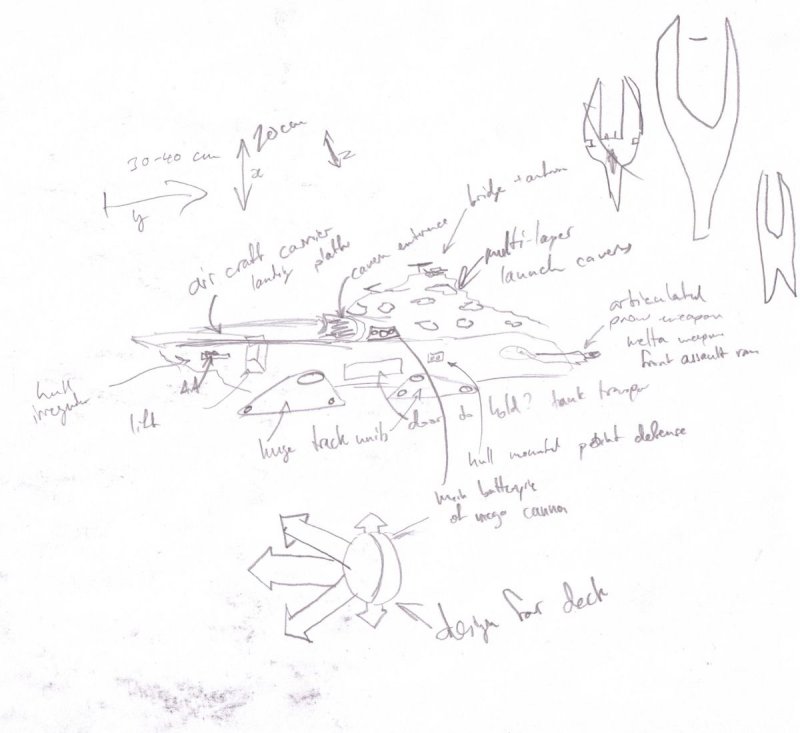 20 cm
30-40 cm
x
z
y
bridge +
air craft carrier
landing
cavern entrance
multi-layer
launch caverns
articulated
prow weapon
melta weapon
front assault ram
hull
AA
lift
huge track units
door to hold? tank transport
hull mounted point defense
main
of mega cannon
design for deck